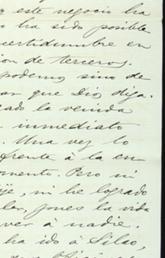 este negocio ha
ha sido posible
certidumbre en
on de terceros.
podemos sino de
que Dios diga.
ado la venida
inmediato
Una vez lo
frente à la en
omento. Pero ni
ni he logrado
pues la vida
ver à nadie.
ha ido à Silao,